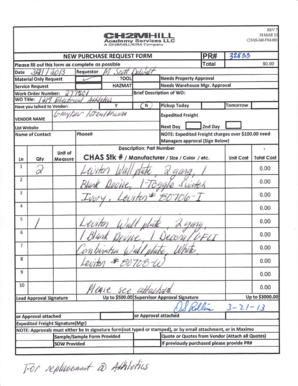 REV 7
CH2MHILL
Academy Services LLC
A CH2MHILL/KTHA Company
NEW PURCHASE REQUEST FORM
PR# 32833
Please fill out this form as complete as possible
Total $0.00
Date 3/21/2013 Requestor M. Scott
Material Only Request TOOL Needs Property Approval
Service Request HAZMAT Needs Warehouse Mgr. Approval
Work Order Number 277501 Brief Description of WO:
WO Title
Have you talked to Vendor? Y N Pickup Today Tomorrow
VENDOR NAME Expedited Freight
List Website Next Day 2nd Day
Name of Contact Phone# NOTE: Expedited Freight charges over $100.00 need Managers approval (Sign below)
Description: Part Number
Ln Qty Unit of Measure CHAS Stk # / Manufacturer / Size / Color / etc. Unit Cost Total Cost
1 2 Leviton Wall plate, 2 gang, 1 0.00
2 Blank Device, 1 Toggle Switch 0.00
3 Ivory, Leviton # 80706-I 0.00
4 0.00
5 1 Leviton Wall plate, 2 gang, 0.00
6 1 Blank Device, 1 Decora/GFCI 0.00
7 Combination Wall plate, White 0.00
8 Leviton # 80708-W 0.00
9 0.00
10 Please see attached 0.00
Lead Approval Signature Up to $500.00 Supervisor Approval Signature Up to $3000.00
3-21-13
or Approval attached or Approval attached
Expedited Freight Signature(Mgr)
NOTE: Approvals must either be in signature form(not typed or stamped), or by email attachment, or in Maximo
Sample/Sample Form Provided Quote or Quotes from Vendor (Attach all quotes)
SOW Provided If previously purchased please provide PR#
For replacement @ Athletics